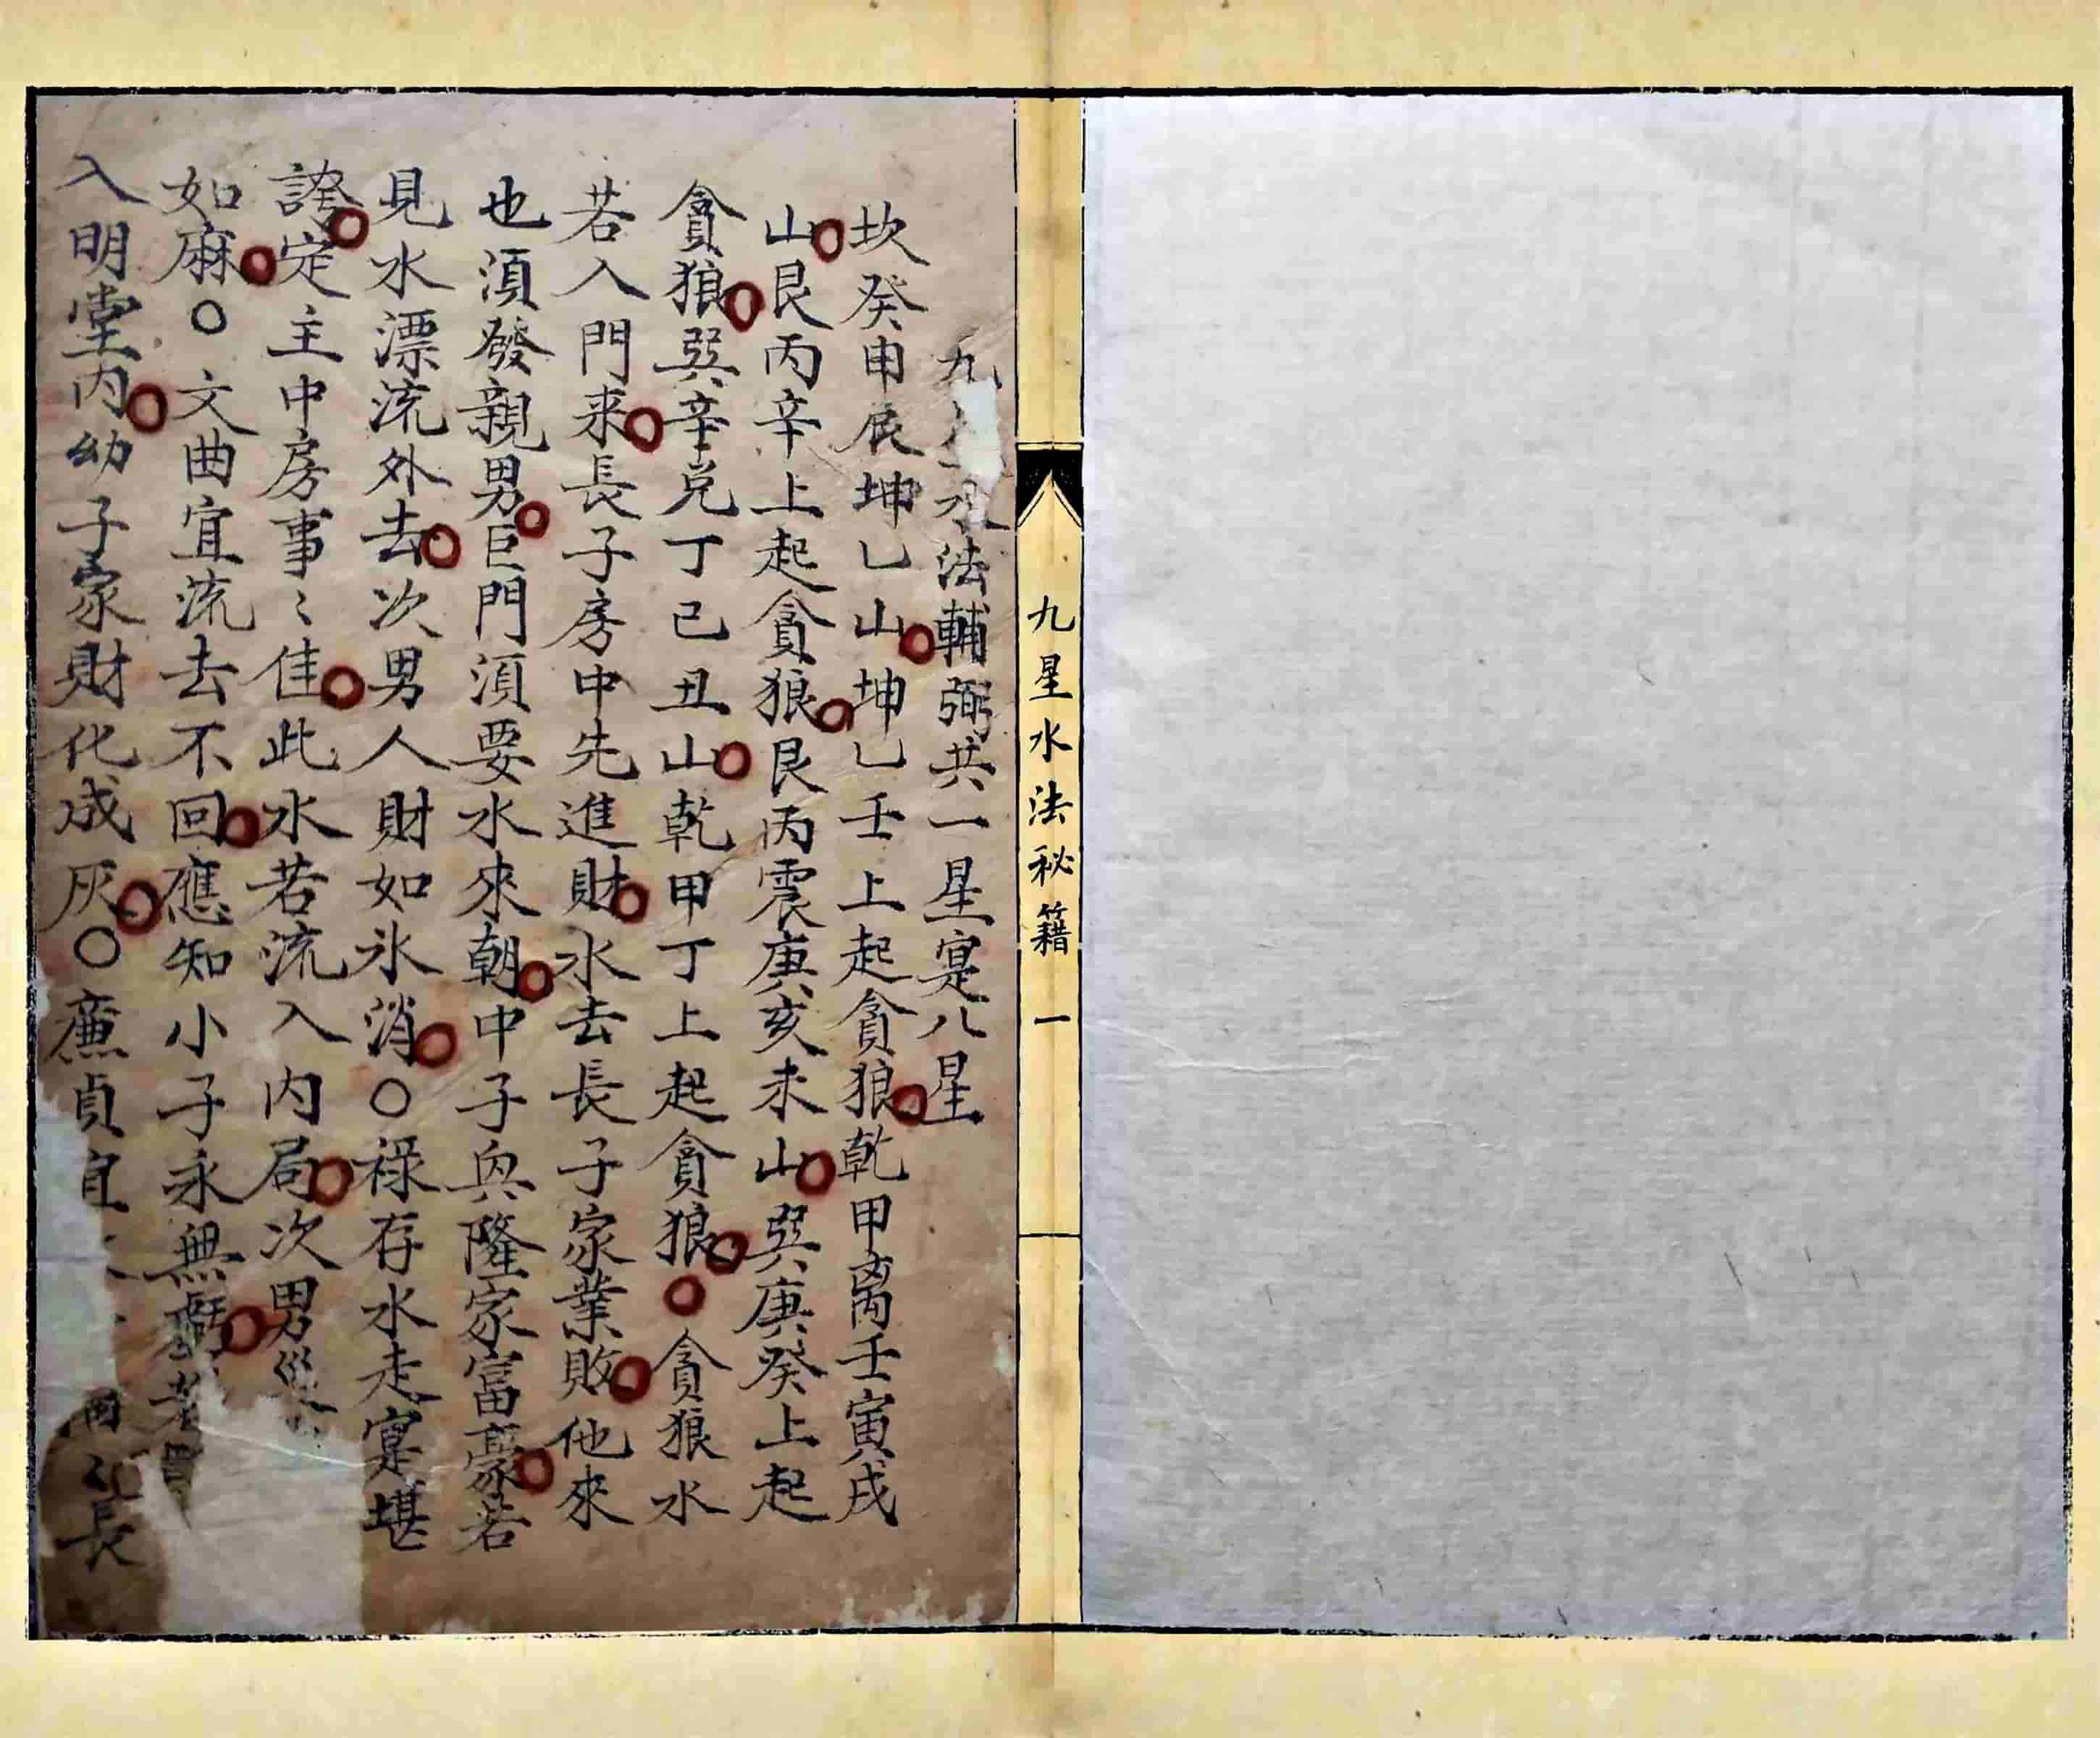 九星水法秘籍 一
九 水法輔弼共一星寔八星
坎癸申辰坤乙山坤乙壬上起貪狼乾甲离壬寅戌
山艮丙辛上起貪狼艮丙震庚亥未山巽庚癸上起
貪狼巽辛兑丁己丑山乾甲丁上起貪狼○貪狼水
若入門来長子房中先進財水去長子家業敗他來
也須發親男巨門須要水來朝中子興隆家富豪若
見水漂流外去次男人財如氷消○祿存水走寔堪
誇定主中房事〻佳此水若流入内局次男災
如麻○文曲宜流去不回應知小子永無
入明堂内幼子家財化成灰○廉貞宜 長